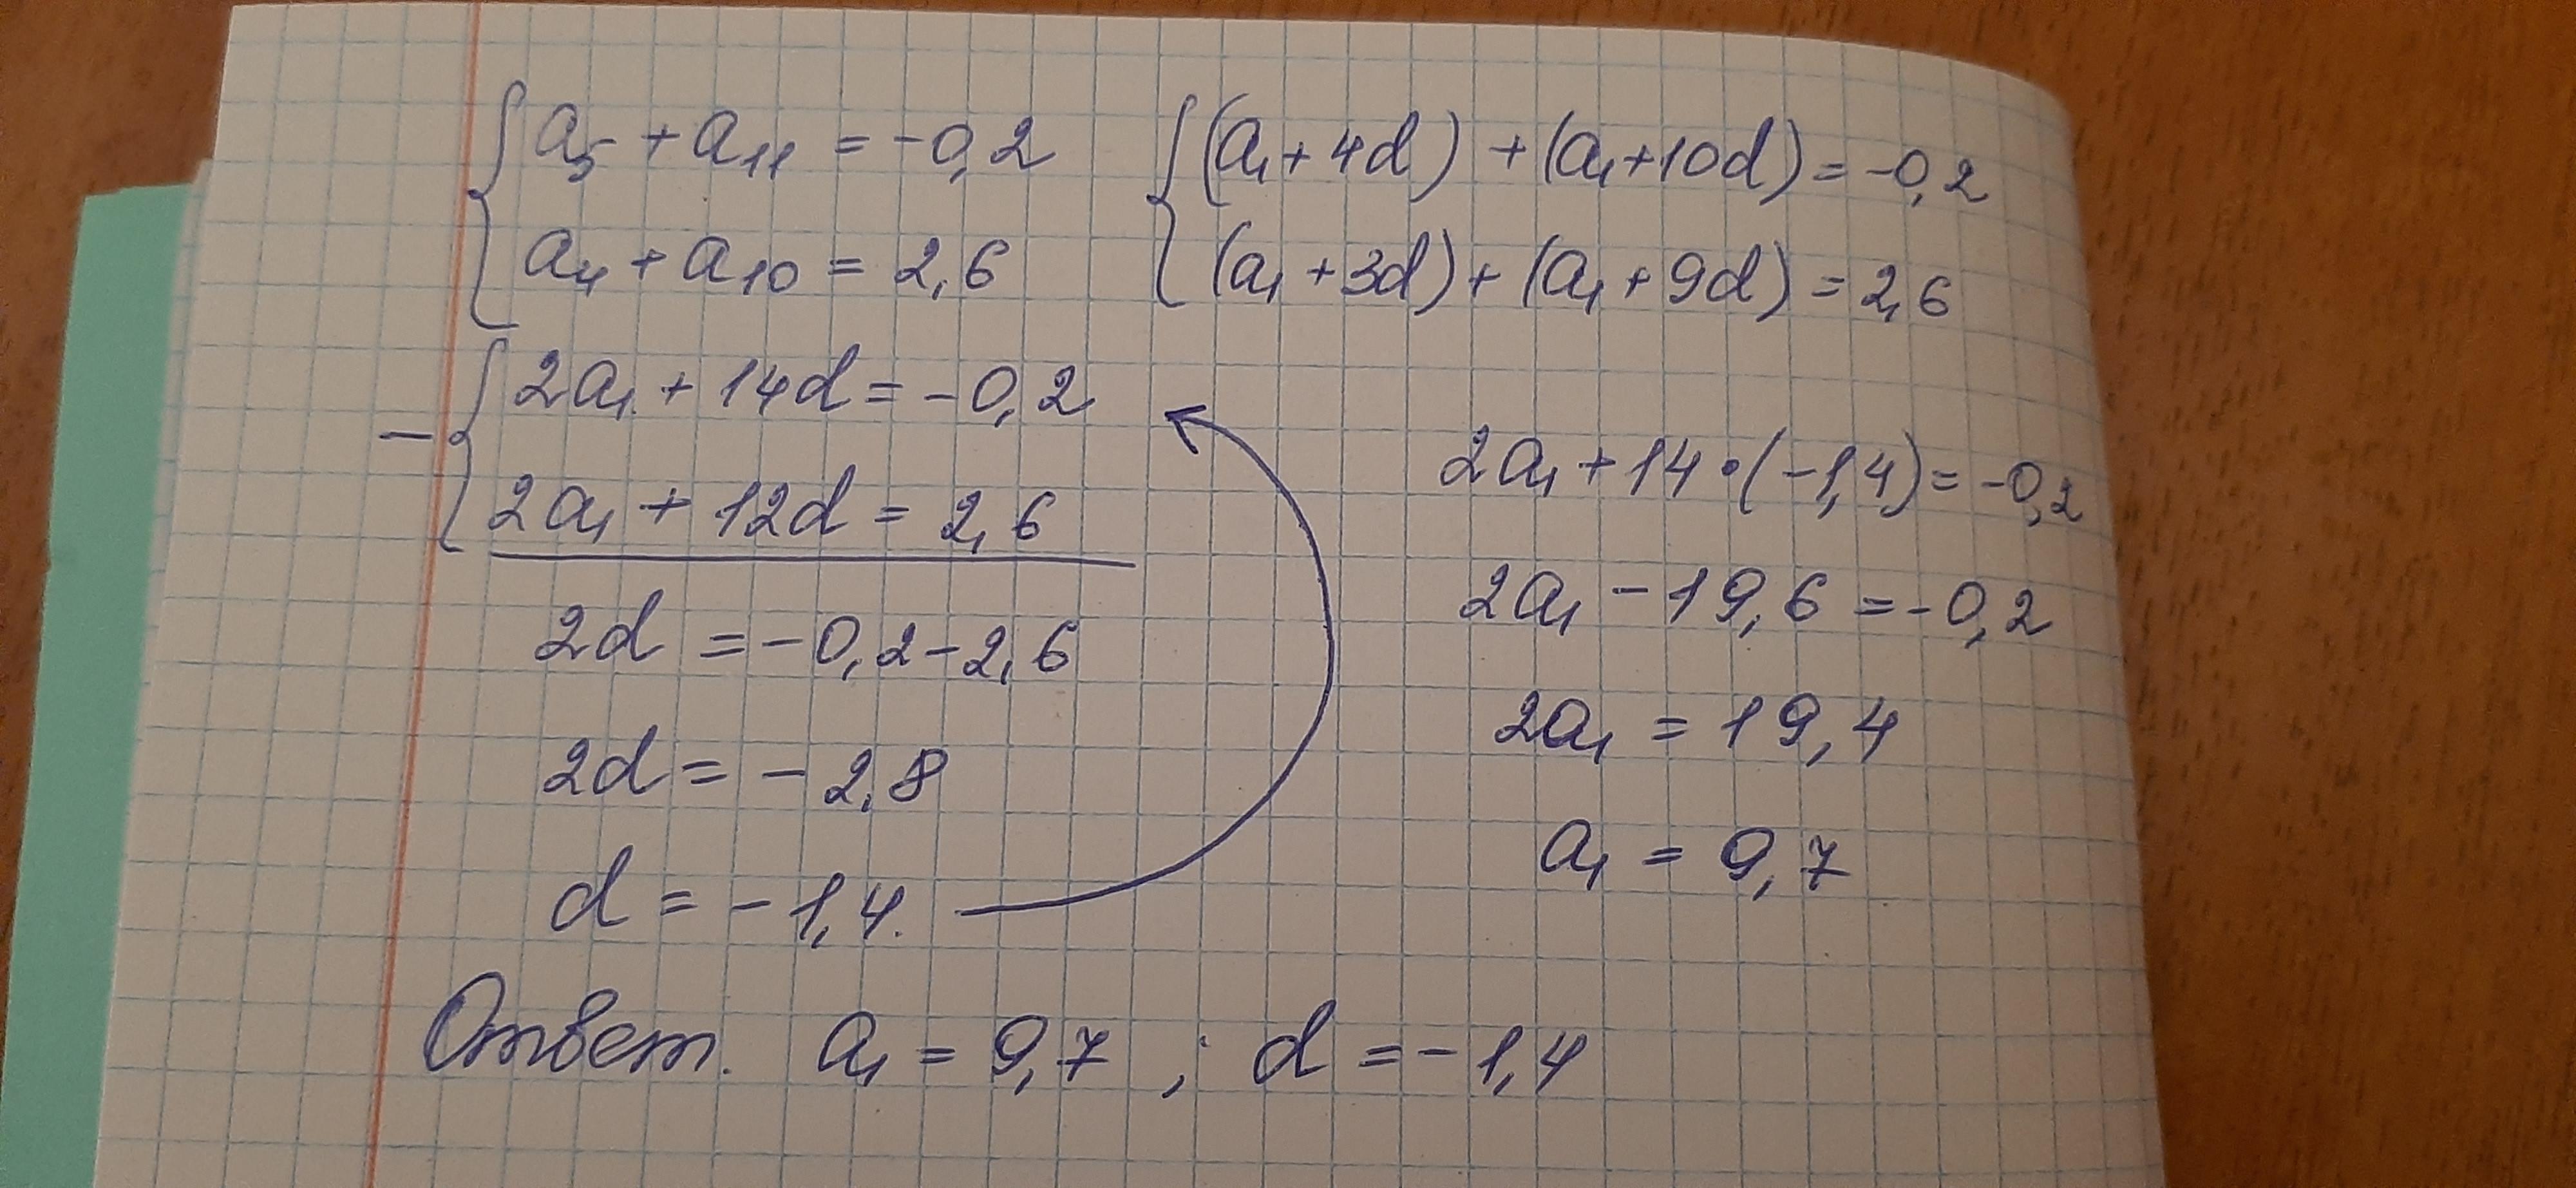 a₅ + a₁₁ = -0,2
a₄ + a₁₀ = 2,6
(a₁ + 4d) + (a₁ + 10d) = -0,2
(a₁ + 3d) + (a₁ + 9d) = 2,6
2a₁ + 14d = -0,2
2a₁ + 12d = 2,6
2d = -0,2 - 2,6
2d = -2,8
d = -1,4.
2a₁ + 14 · (-1,4) = -0,2
2a₁ - 19,6 = -0,2
2a₁ = 19,4
a₁ = 9,7
Ответ. a₁ = 9,7 ; d = -1,4